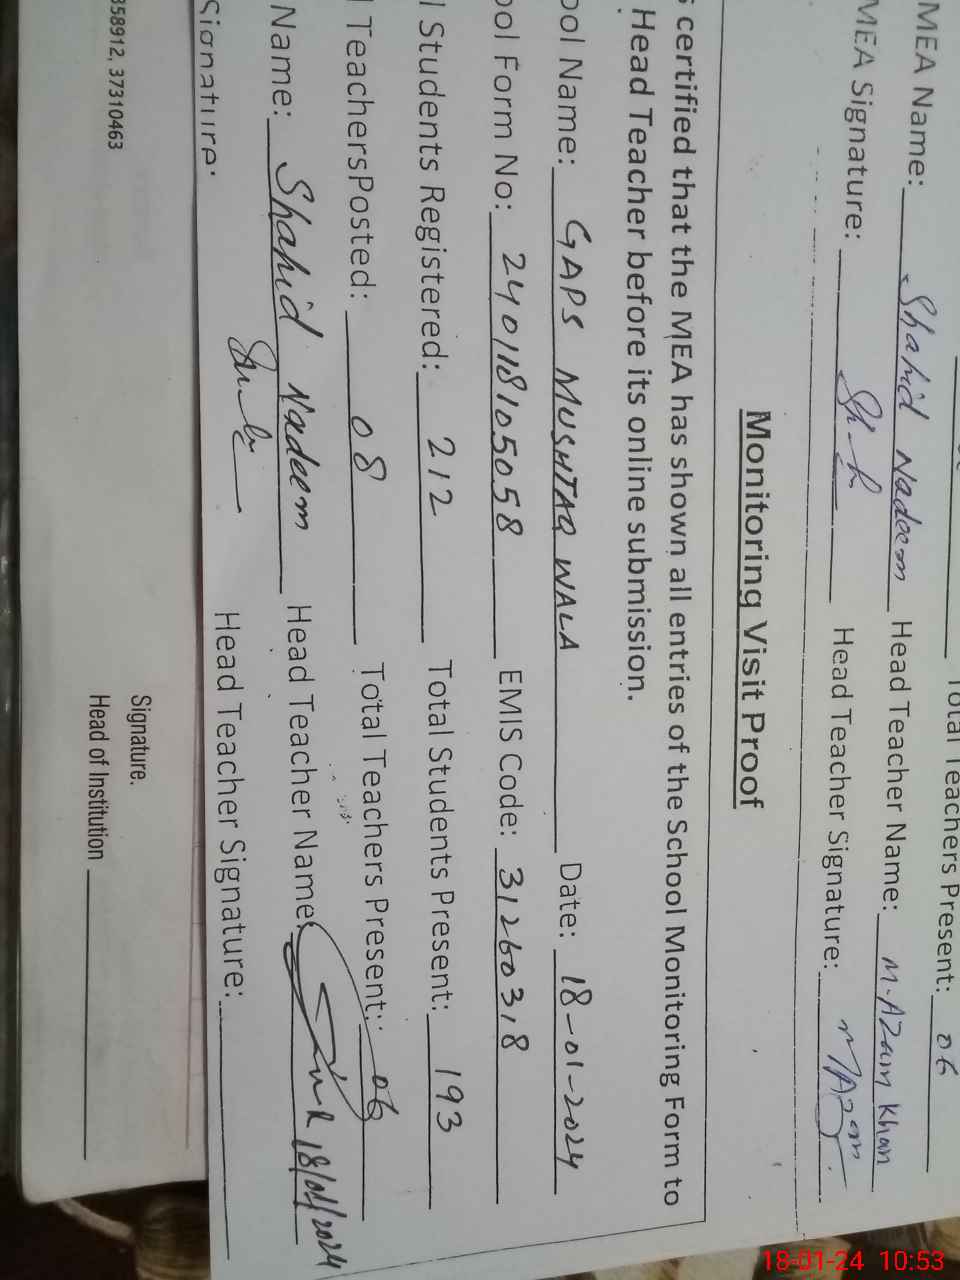 Total Teachers Present: 06
MEA Name: Shahid Nadeem Head Teacher Name: M. Azam Khan
MEA Signature: Head Teacher Signature:
Monitoring Visit Proof
certified that the MEA has shown all entries of the School Monitoring Form to
Head Teacher before its online submission.
ool Name: GAPS MUSHTAQ WALA Date: 18-01-2024
ool Form No: 2401181050 58 EMIS Code: 31260318
l Students Registered: 212 Total Students Present: 193
l TeachersPosted: 08 Total Teachers Present: 06
Name: Shahid Nadeem Head Teacher Name: 18/01/2024
Signature: Head Teacher Signature:
Signature.
358912, 37310463 Head of Institution
18-01-24 10:53